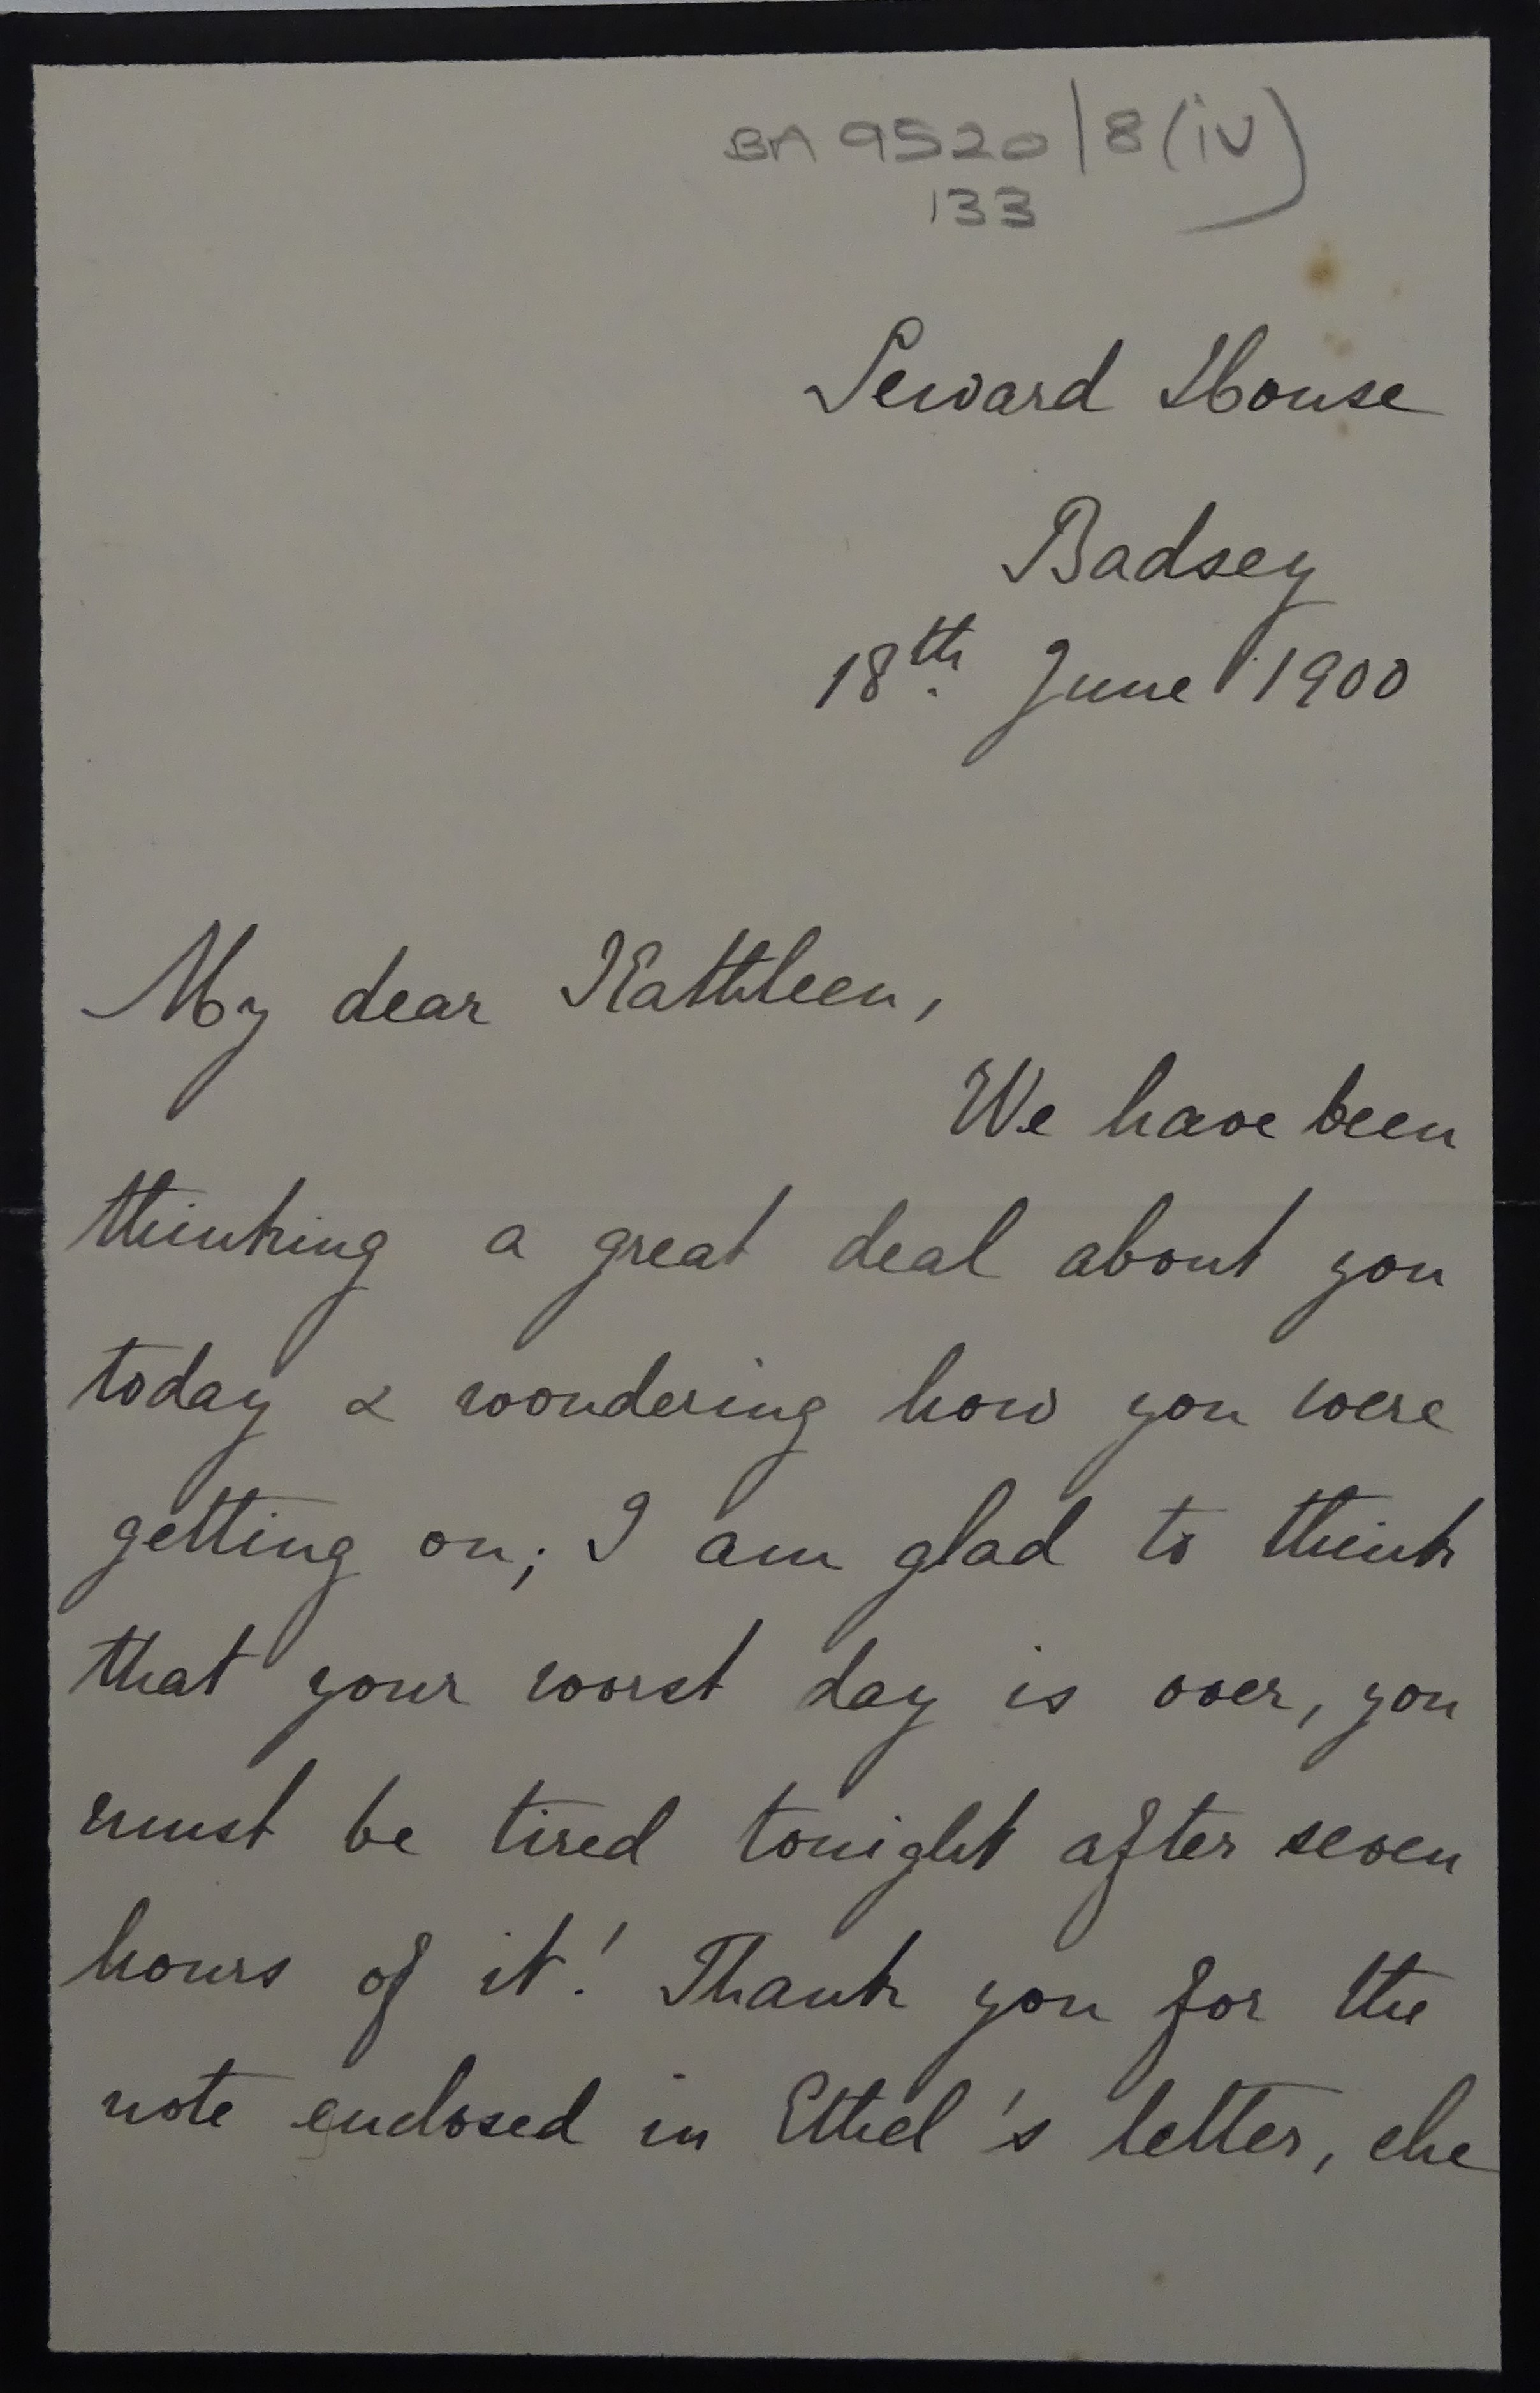 BA 9520/8(iv)
133
Seward House
Badsey
18th. June 1900
My dear Kathleen,
We have been
thinking a great deal about you
today & wondering how you were
getting on; I am glad to think
that your worst day is over, you
must be tired tonight after seven
hours of it! Thank you for the
note enclosed in Ethel's letter, she